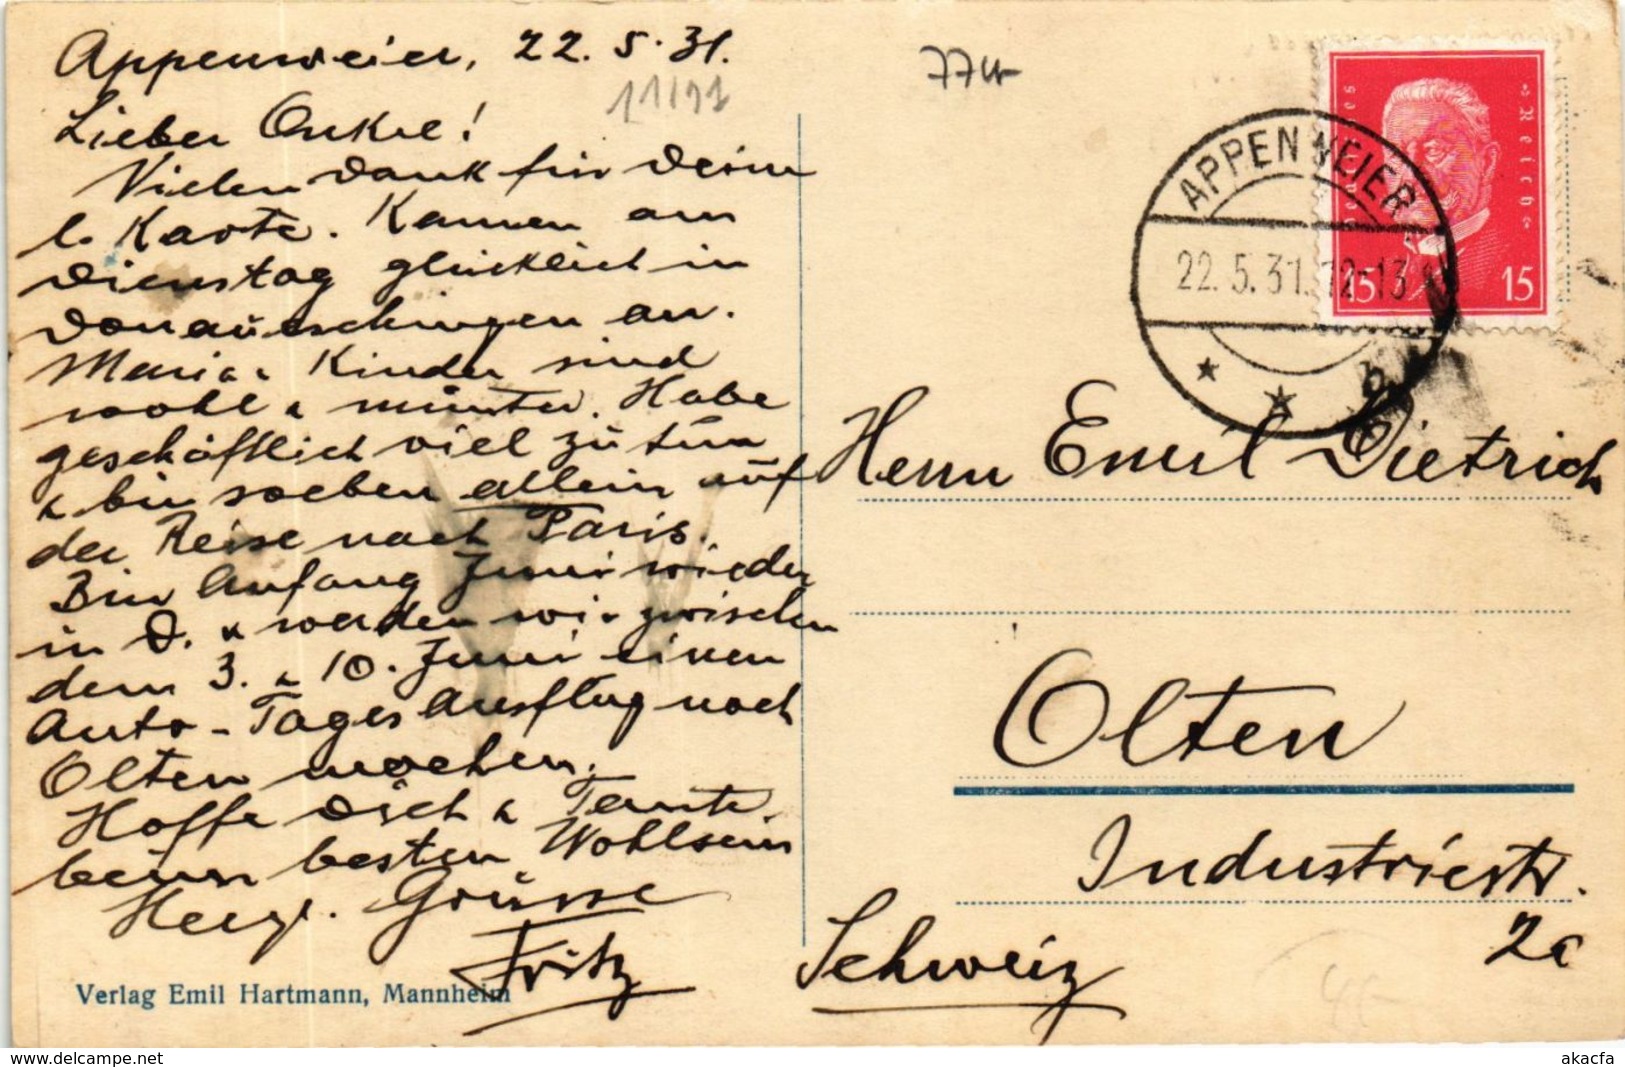 Appenweier, 22. 5. 31.
11/91
Lieber Onkel!
Vielen Dank für Deine
l. Karte. Kamen am
Dienstag glücklich in
Donaueschingen an.
Maria & Kinder sind
wohl & munter. Habe
geschäftlich viel zu tun
& bin soeben allein auf
der Reise nach Paris.
Bin Anfang Juni wieder
in D. & werden wir zwischen
dem 3. & 10. Juni einen
Auto-Tages Ausflug nach
Olten machen.
Hoffe Dich & Tante
beim besten Wohlsein
Herzl. Grüsse
Fritz
Verlag Emil Hartmann, Mannheim
APPENWEIER
22.5.31.12-13
b
Reich
15 15
Herrn Emil Dietrich
Olten
Industriestr.
Schweiz
akacfa
www.delcampe.net